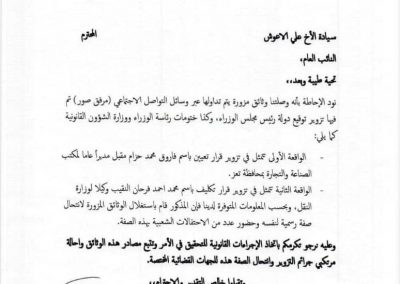 سيادة الأخ علي الاعوش المحترم
النائب العام،
تحية طيبة وبعد،،،
نود الإحاطة بأنه وصلتنا وثائق مزورة يتم تداولها عبر وسائل التواصل الاجتماعي (مرفق صور) تم
فيها تزوير توقيع دولة رئيس مجلس الوزراء، وكذا ختومات رئاسة الوزراء ووزارة الشؤون القانونية
كما يلي:
- الواقعة الأولى تتمثل في تزوير قرار تعيين باسم فاروق محمد حزام مقبل مديراً عاما لمكتب
الصناعة والتجارة بمحافظة تعز.
- الواقعة الثانية تتمثل في تزوير قرار تكليف باسم محمد احمد فرحان النقيب وكيلا لوزارة
النقل، وبحسب المعلومات المتوفرة لدينا فإن المذكور قام باستغلال الوثائق المزورة لانتحال
صفة رسمية لنفسه وحضور عدد من الاحتفالات الشعبية بهذه الصفة.
وعليه نرجو تكرمكم باتخاذ الإجراءات القانونية للتحقيق في الأمر وتتبع مصادر هذه الوثائق واحالة
مرتكبي جرائم التزوير وانتحال الصفة هذه للجهات القضائية المختصة.
وتقبلوا خالص التقدير والاحترام،،،